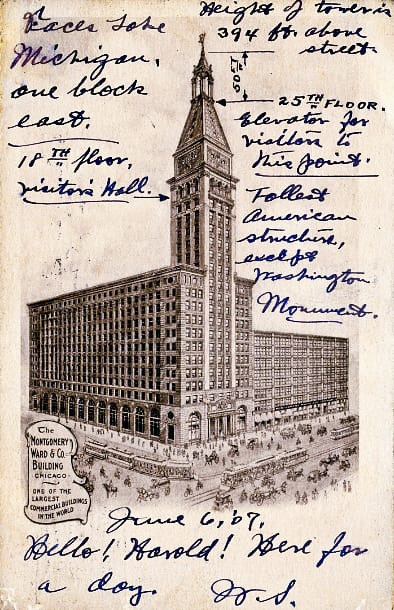 Faces Lake
Michigan,
one block
east.
18TH floor,
visitor's Hall.
Height of tower is
394 ft. above
street.
25TH FLOOR.
Elevator for
visitors to
this point.
Tallest
American
structure,
except
Washington
Monument.
The
MONTGOMERY
WARD & CO.
BUILDING
CHICAGO
ONE OF THE
LARGEST
COMMERCIAL BUILDINGS
IN THE WORLD
June 6, '07.
Hello! Harold! Here for
a day. W.S.